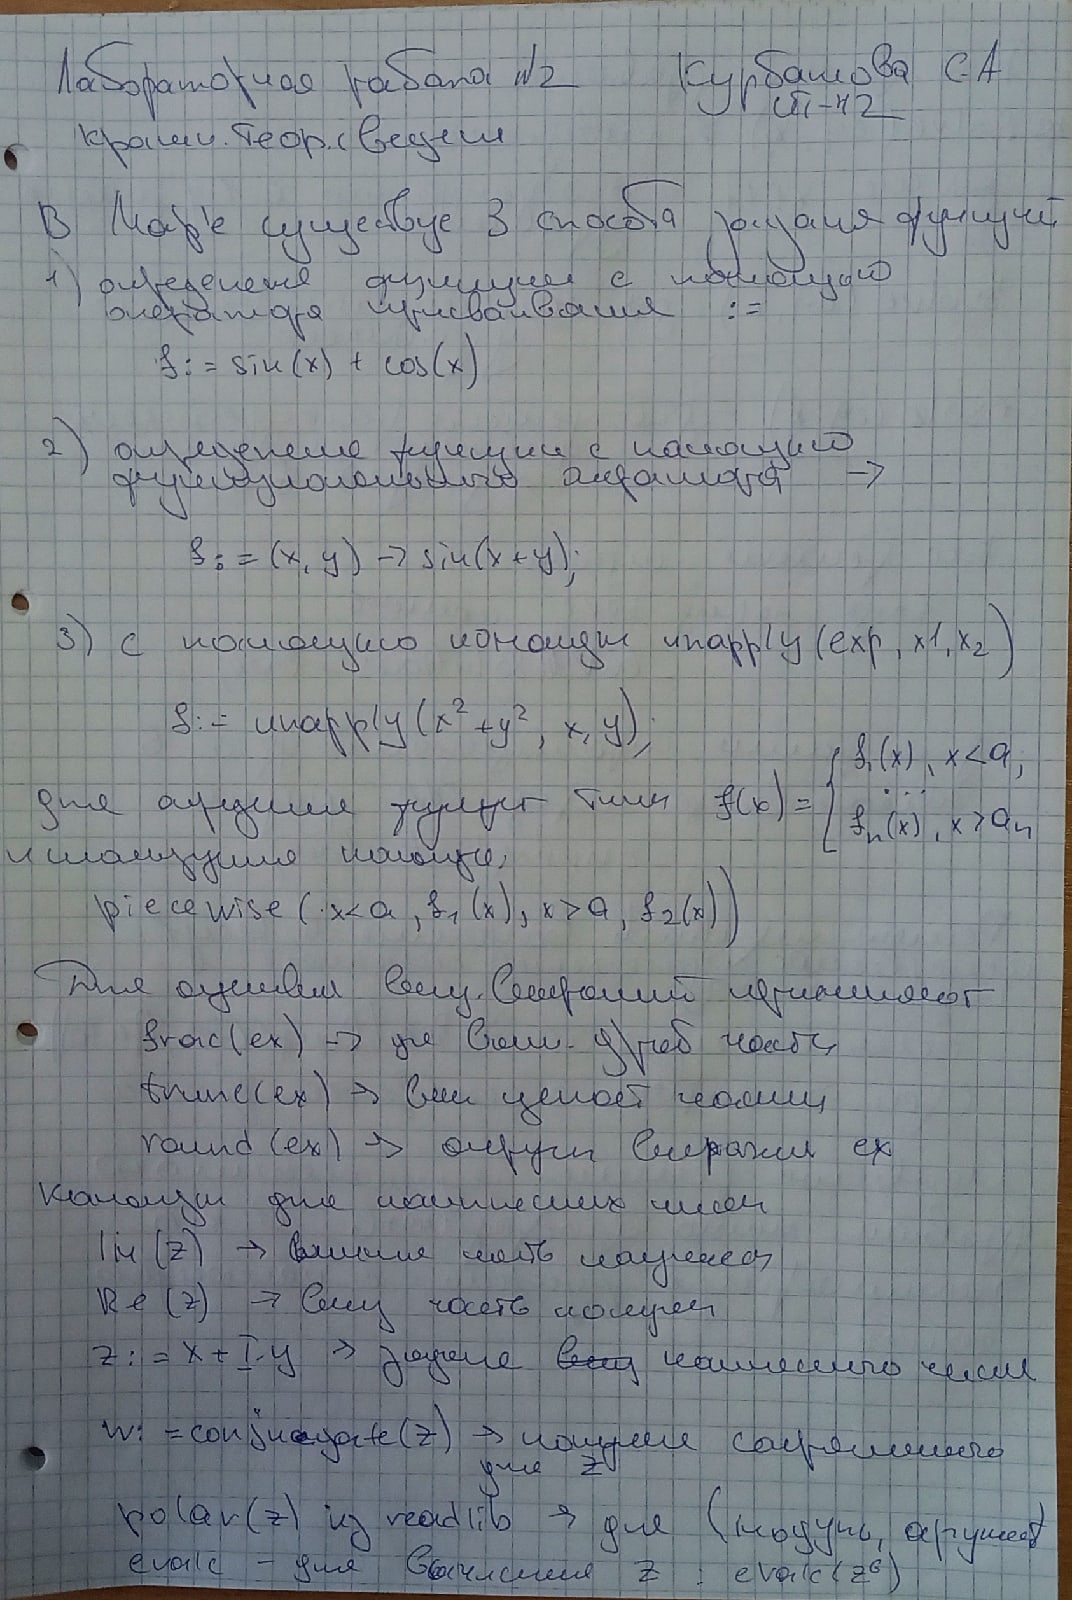 Лабораторная работа №2 Курбатова С.А
Кратк. теор. сведен
В Maple существуе 3 способа задания функций
1) определения функции с помощью
оператора присваивания :=
f:= sin(x) + cos(x)
2) определение функции с помощью
функционального оператора ->
f:= (x, y) -> sin(x+y);
3) с помощью команды unapply (exp, x1, x2)
f:= unapply (x² + y², x, y);
f1(x), x<a,
для функции типа f(x) = ...
fn(x), x>an
piecewise (x<a, f1(x), x>a, f2(x))
Для вещ. применяют
frac(ex) -> дроб часть
trunc(ex) -> целой части
round(ex) -> округл выражен ex
Команды для комплексных чисел
Im(z) -> мнимая часть
Re(z) -> вещ часть
z:= x + I·y -> задание комплексного числа
w:= conjugate(z) -> сопряженного
для z
polar(z) из readlib -> для (модуль, аргумент)
evalc - для вычисления z : evalc(z⁶)